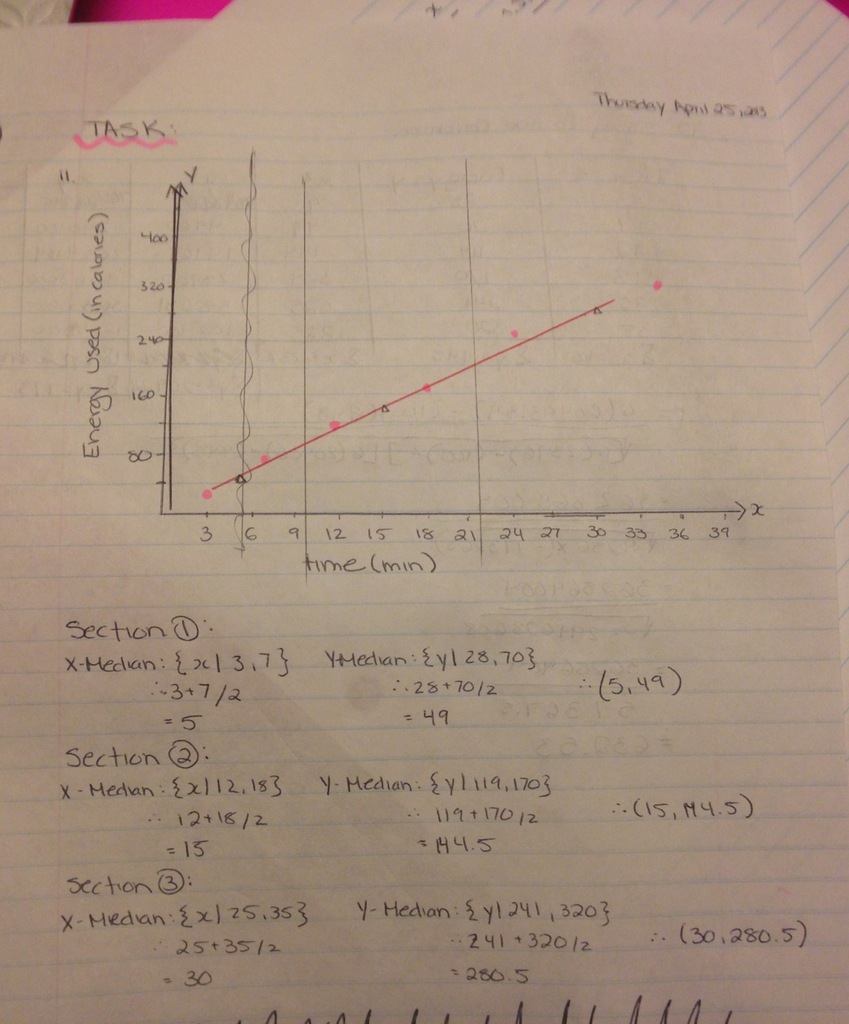 Thursday April 25, 2013
TASK:
11.
Y
Energy Used (in calories)
400
320
240
160
80
3 6 9 12 15 18 21 24 27 30 33 36 39
x
time (min)
Section ①:
X-Median: {x| 3, 7} Y-Median: {y| 28, 70}
∴ 3+7/2 ∴ 28+70/2 ∴ (5, 49)
= 5 = 49
Section ②:
X-Median: {x| 12, 18} Y-Median: {y| 119, 170}
∴ 12+18/2 ∴ 119+170/2 ∴ (15, 144.5)
= 15 = 144.5
Section ③:
X-Median: {x| 25, 35} Y-Median: {y| 241, 320}
∴ 25+35/2 ∴ 241+320/2 ∴ (30, 280.5)
= 30 = 280.5